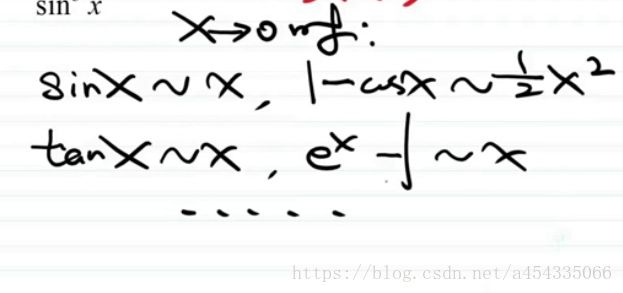 sin x
x→0时:
sinx~x, 1-cosx~1/2x²
tanx~x, eˣ-1~x
.....
https://blog.csdn.net/a454335066